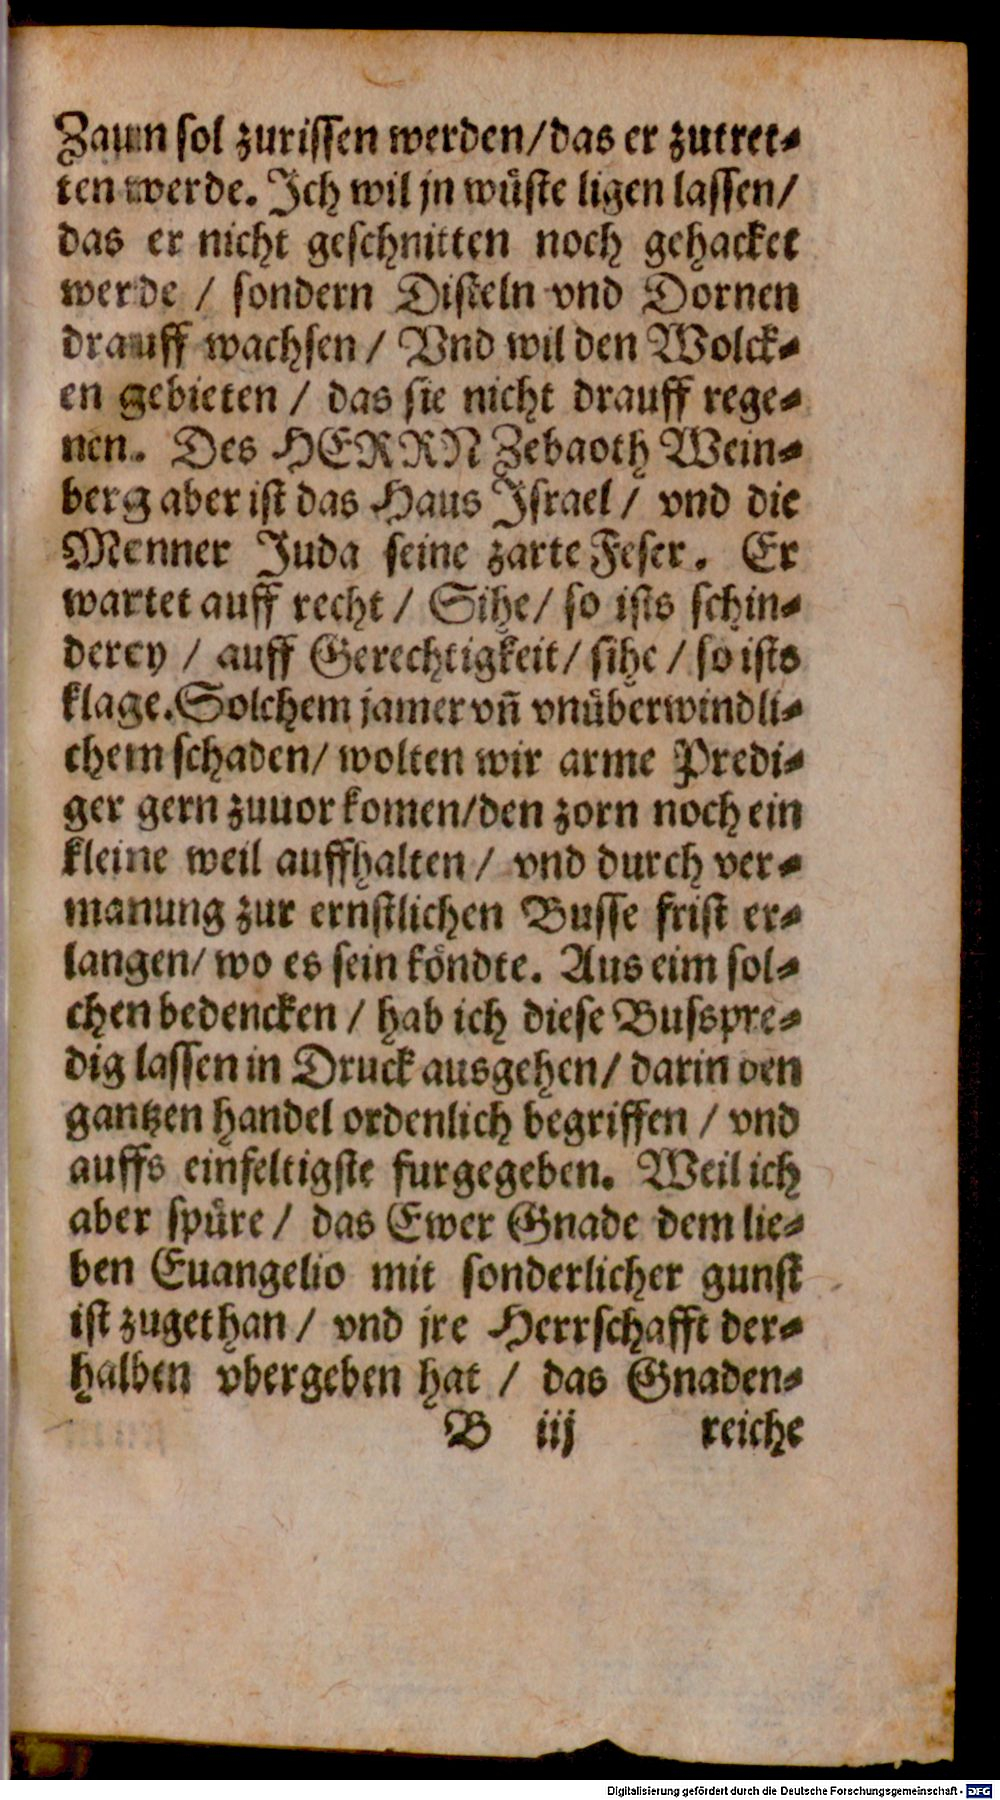 Zaun sol zurissen werden/das er zutret⸗
ten werde. Ich wil jn wuͤste ligen lassen/
das er nicht geschnitten noch gehacket
werde / sondern Disteln vnd Dornen
drauff wachsen / Vnd wil den Wolck⸗
en gebieten / das sie nicht drauff rege⸗
nen. Des HERRN Zebaoth Wein⸗
berg aber ist das Haus Israel / vnd die
Menner Juda seine zarte Feser. Er
wartet auff recht / Sihe/ so ists schin⸗
derey / auff Gerechtigkeit/ sihe / so ists
klage. Solchem jamer vñ vnuͤberwindli⸗
chem schaden/ wolten wir arme Predi⸗
ger gern zuuor komen/den zorn noch ein
kleine weil auffhalten / vnd durch ver⸗
manung zur ernstlichen Busse frist er⸗
langen/ wo es sein koͤndte. Aus eim sol⸗
chen bedencken / hab ich diese Busspre⸗
dig lassen in Druck ausgehen/ darin den
gantzen handel ordenlich begriffen / vnd
auffs einfeltigste furgegeben. Weil ich
aber spuͤre / das Ewer Gnade dem lie⸗
ben Euangelio mit sonderlicher gunst
ist zugethan / vnd jre Herrschafft der⸗
halben vbergeben hat / das Gnaden⸗
B iij reiche
Digitalisierung gefördert durch die Deutsche Forschungsgemeinschaft - DFG